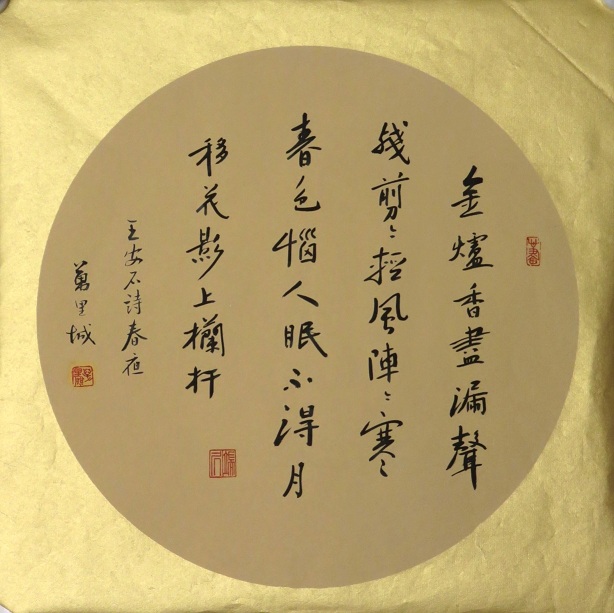 金爐香盡漏聲
殘剪〻輕風陣〻寒
春色惱人眠不得月
移花影上欄杆
王安石詩春夜
萬里城